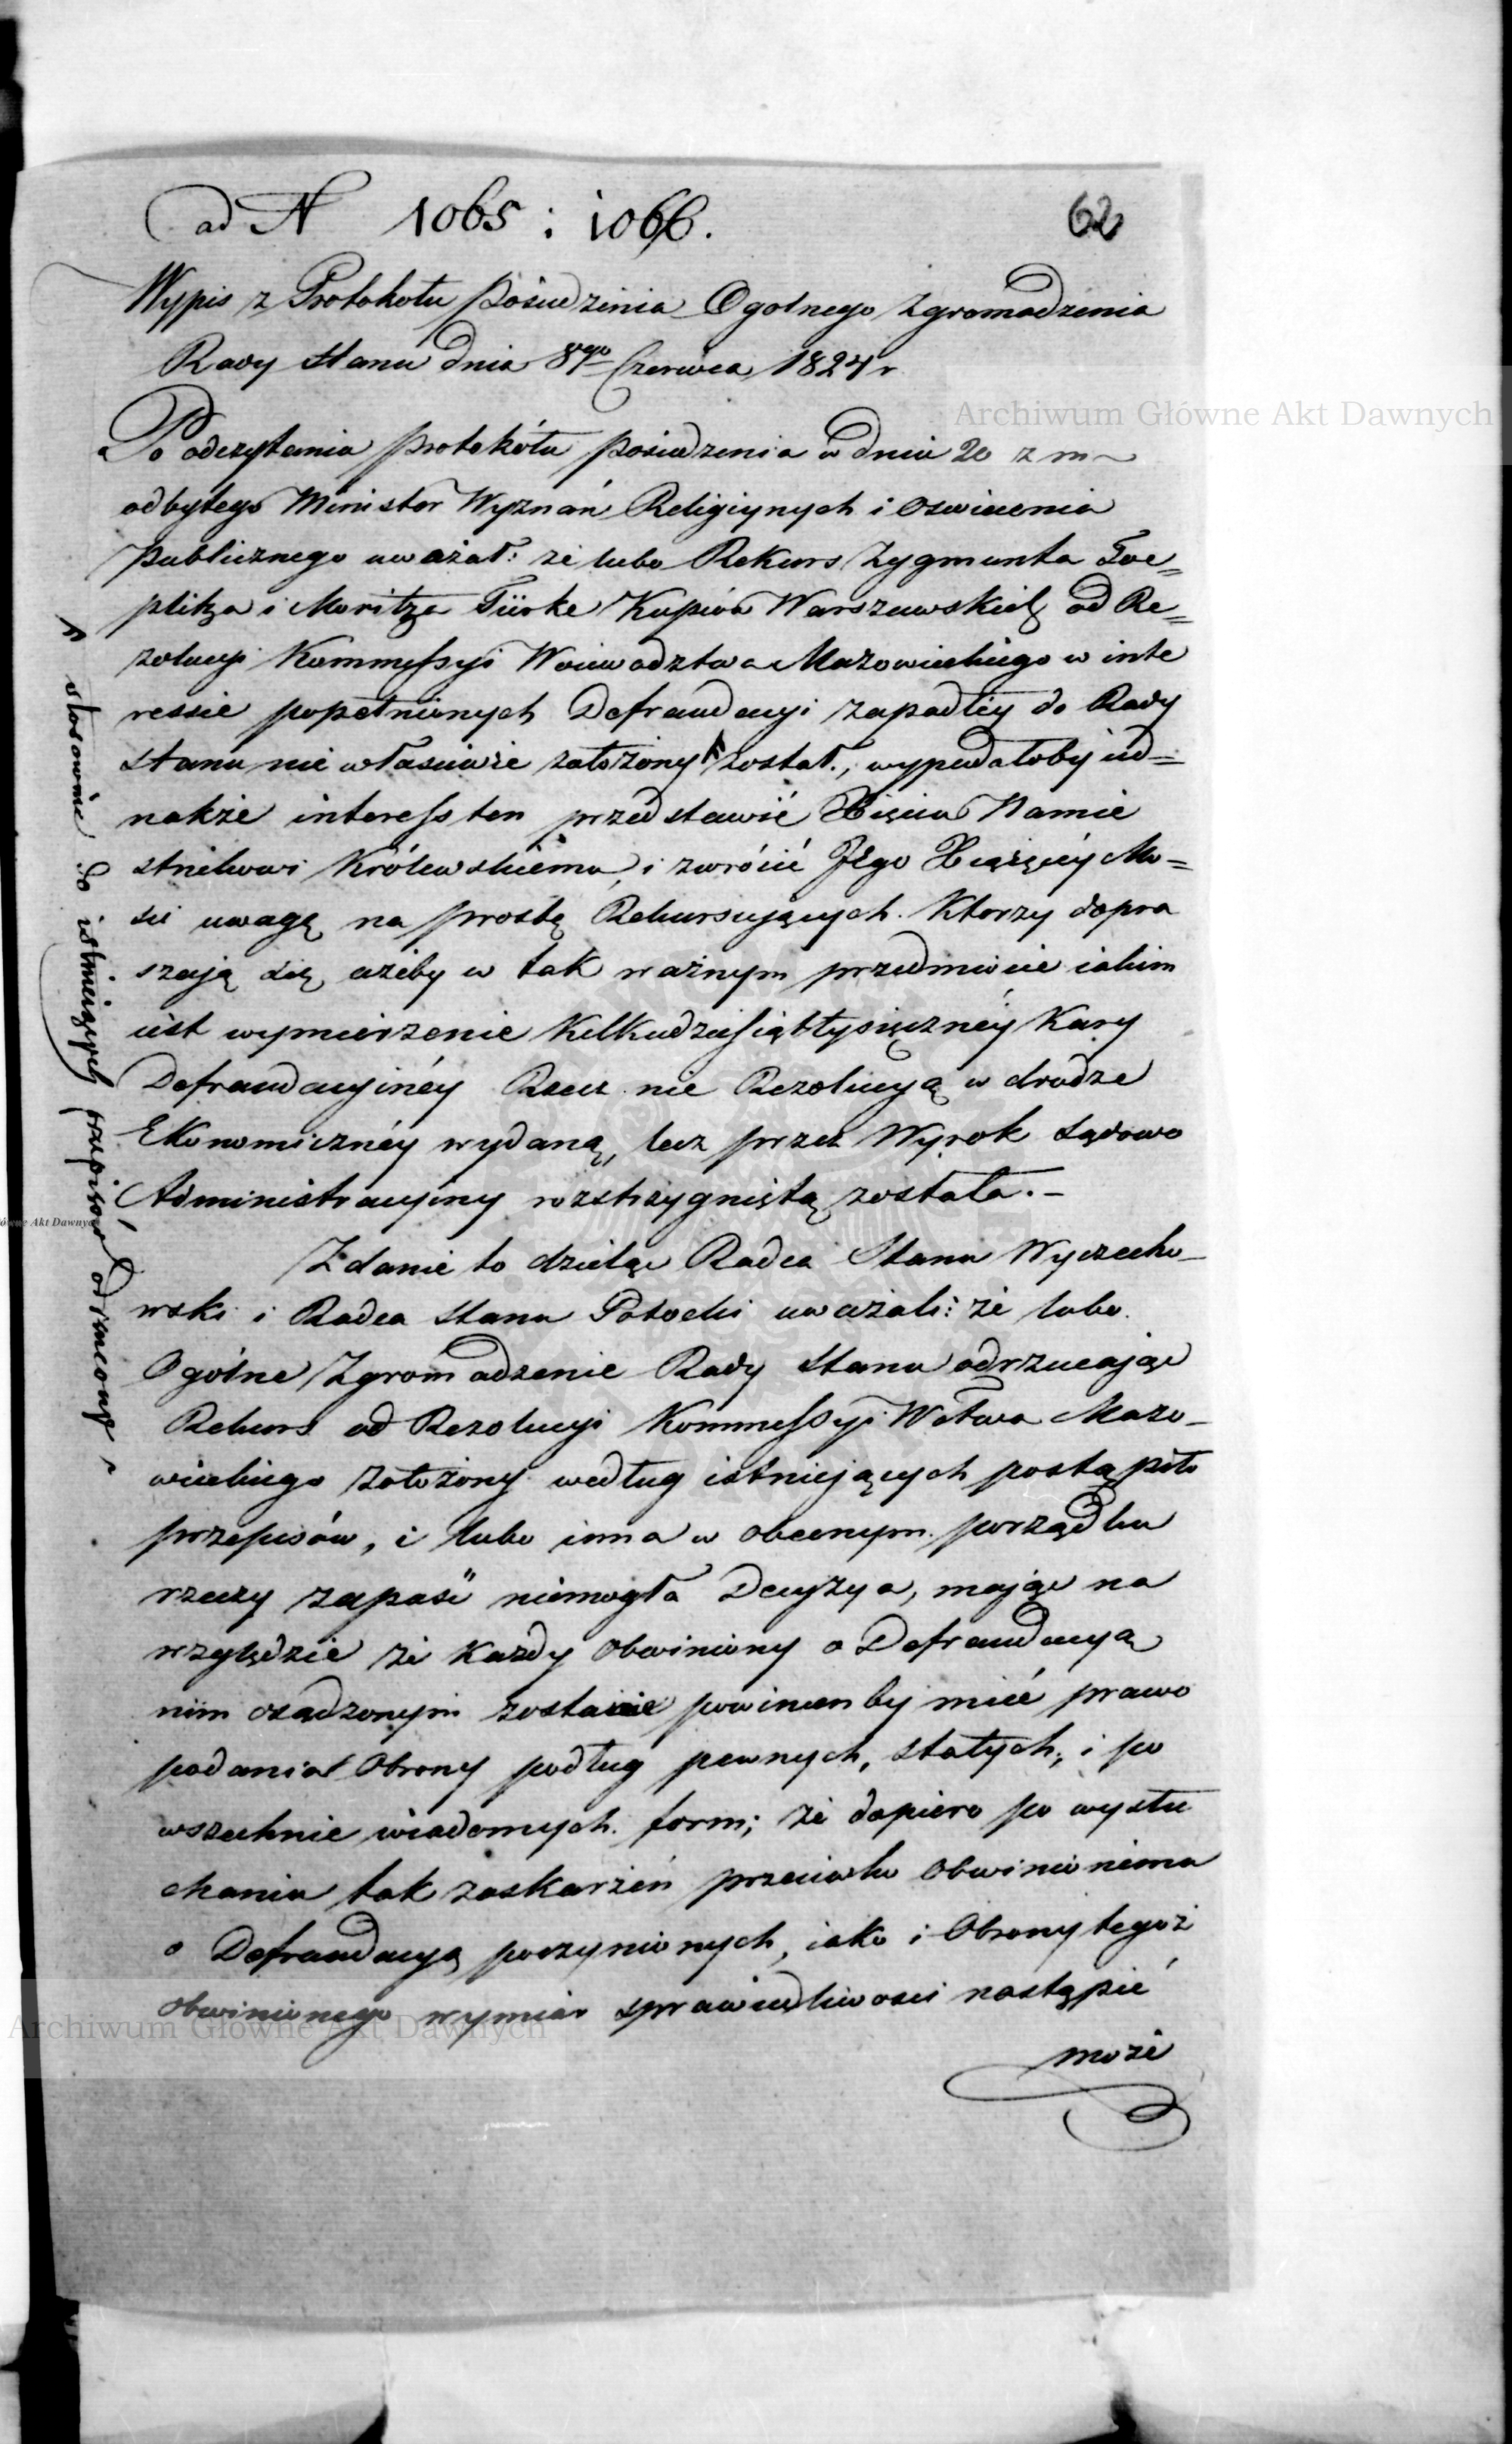 ad N 1065 : i 1066.
62
Wypis z Protokołu Posiedzenia Ogolnego Zgromadzenia
Rady Stanu dnia 8go Czerwca 1824 r
Archiwum Główne Akt Dawnych
Po odczytaniu protokółu posiedzenia w dniu 20 z m
odbytego Minister Wyznań Religiynych i Oswiecenia
Publicznego uważał: że lubo Rekurs Zygmunta Toe=
plitza i Moritza Türke Kupców Warszawskich od Re=
zolucyi Kommessyi Woiewodztwa Mazowieckiego w inte
ressie popełnionych Defraudacyi zapadłéy do Rady
Stanu nie właściwie założony został, wypadałoby ied=
nakże interess ten przedstawić Xięciu Namie
stnikowi Królewskiemu, i zwrócić Jego Xiążęcéy Mo=
ści uwagę na prosbę Rekursujących. Ktorzy dopra
szają się, ażeby w tak ważnym przedmiocie iakim
iest wymierzenie Kilkudziesiąttysięcznéy Kary
Defraudacyinéy Rzecz nie Rezolucyą w drodze
Ekonomicznéy wydaną, lecz przez Wyrok Sądowo
Administracyiny rozstrzygniętą została. -
Zdanie to dzieląc Radca Stanu Wyczecho-
wski i Radca Stanu Potocki uważali: że lubo
Ogólne Zgromadzenie Rady Stanu odrzucając
Rekurs od Rezolucyi Kommessyi Wctwa Mazo-
wieckiego założony według istniejących postąpiło
przepisów, i lubo inna w obecnym porządku
rzeczy zapaść niemogła Decyzya, mając na
względzie że każdy obwiniony o Defraudacyą
nim osądzonym zostanie powinienby mieć prawo
podania Obrony podług pewnych, stałych, i po
wszechnie wiadomych form; że dopiero po wysłu
chaniu tak zaskarżeń przeciwko Obwinionemu
o Defraudacyą poczynionych, iako i Obrony tegoż
obwinionego wymiar sprawiedliwości nastąpić
może
stosownie do istnieiących przepisów odrzucony
Główne Akt Dawnych
Archiwum Główne Akt Dawnych